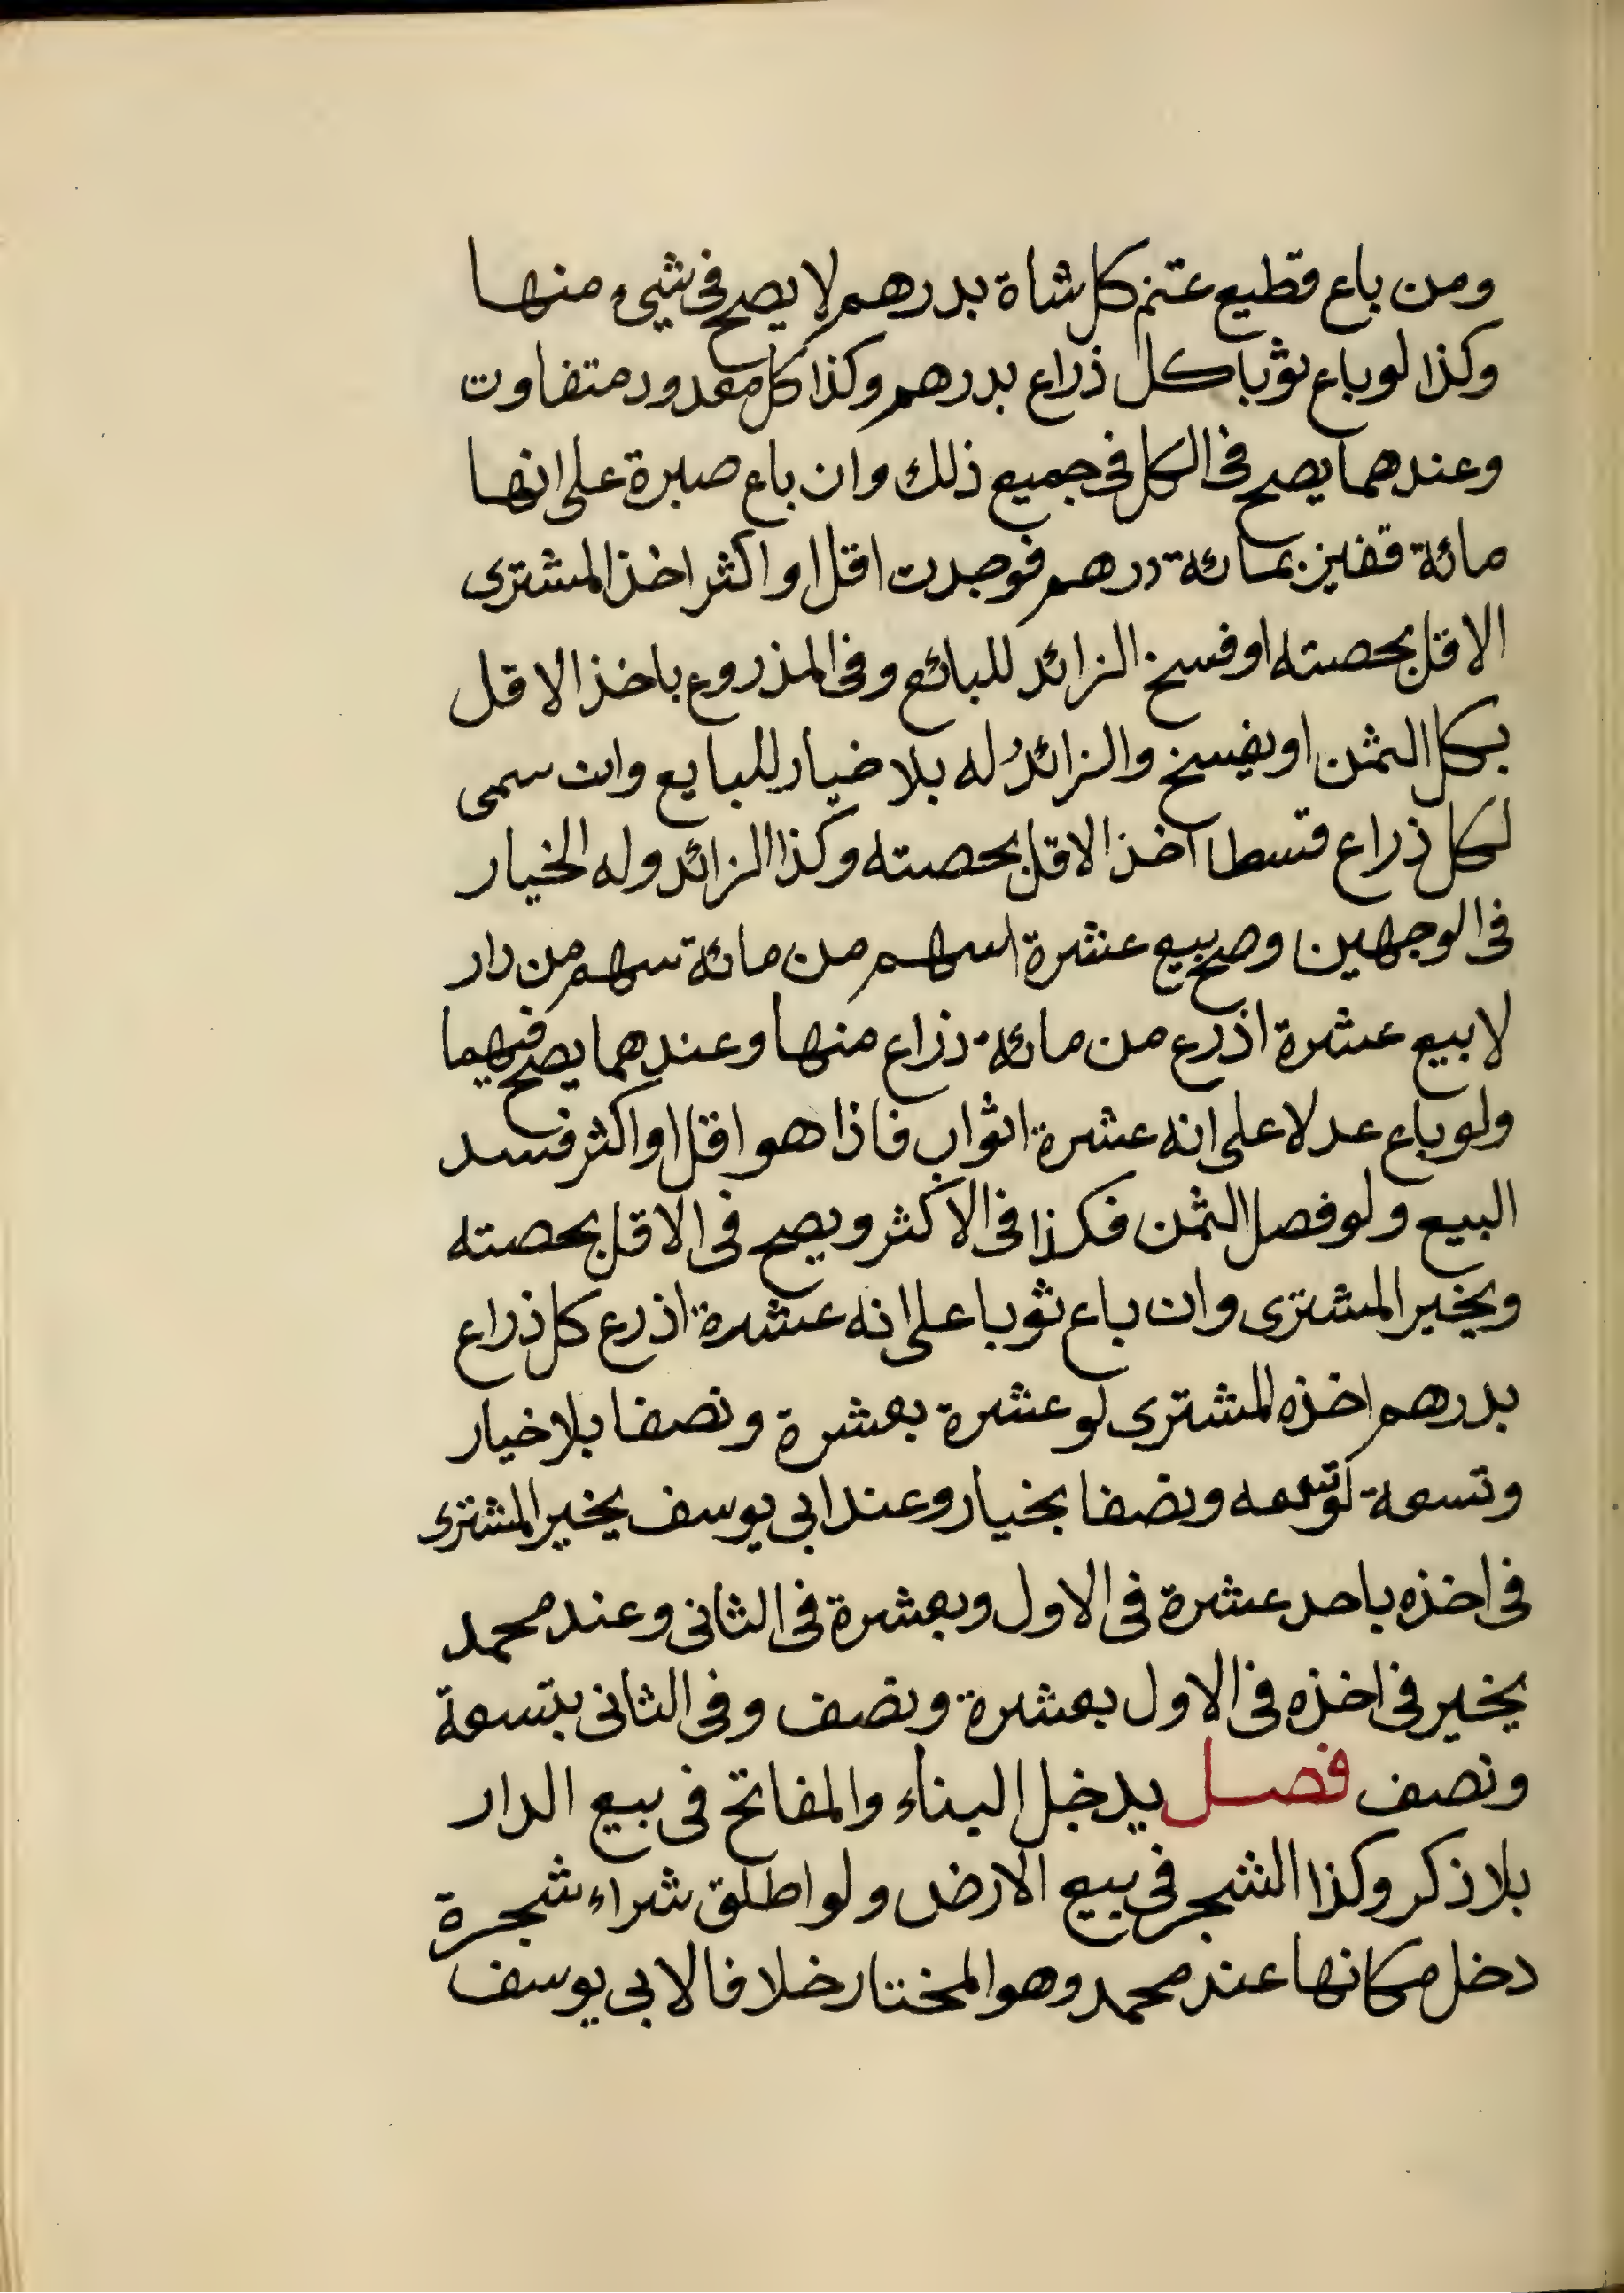 ومن باع قطيع عنم كل شاة بدرهم لا يصح فى شيء منها
وكذا لو باع ثوبا كل ذراع بدرهم وكذا كل معدود متفاوت
وعندهما يصح فى الكل فى جميع ذلك وان باع صبرة على انها
مائة قفيز بمائة درهم فوجدت اقل او اكثر اخذ المشترى
الاقل بحصته او فسخ الزائد للبائع وفى المذروع ياخذ الاقل
بكل الثمن او يفسخ والزائد له بلا خيار للبايع وان سمى
لكل ذراع قسطا اخذ الاقل بحصته وكذا الزائد وله الخيار
فى الوجهين وصح بيع عشرة اسهم من مائة سهم من دار
لا بيع عشرة اذرع من مائة ذراع منها وعندهما يصح فيهما
ولو باع عدلا على انه عشرة اثواب فاذا هو اقل او اكثر فسد
البيع ولو فصل الثمن فكذا فى الاكثر ويصح فى الاقل بحصته
ويخير المشترى وان باع ثوبا على انه عشرة اذرع كل ذراع
بدرهم اخذه المشترى لو عشرة بعشرة ونصفا بلا خيار
وتسعة لو تسعه ونصفا بخيار وعند ابى يوسف يخير المشترى
فى اخذه باحد عشرة فى الاول وبعشرة فى الثانى وعند محمد
يخير فى اخذه فى الاول بعشرة ونصف وفى الثانى بتسعة
ونصف فصل يدخل البناء والمفاتح فى بيع الدار
بلا ذكر وكذا الشجر فى بيع الارض ولو اطلق شراء شجرة
دخل مكانها عند محمد وهو المختار خلافا لابى يوسف